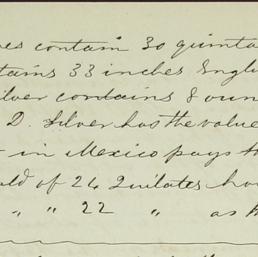 es contain 30 quinta
tains 33 inches Engli
ilver contains 8 oun
D. Silver has the value
in Mexico pays th
old of 24 Quilates ha
" " 22 " as th